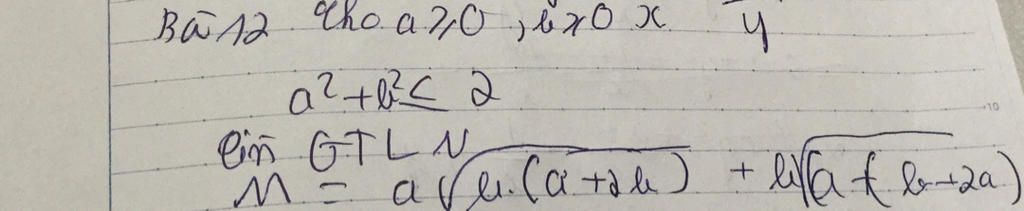 Bài 12 Cho a ≥ 0, b ≥ 0 x y
a² + b² ≤ 2
Tìm GTLN
M = a√(b.(a+2b)) + b√(a(b+2a))